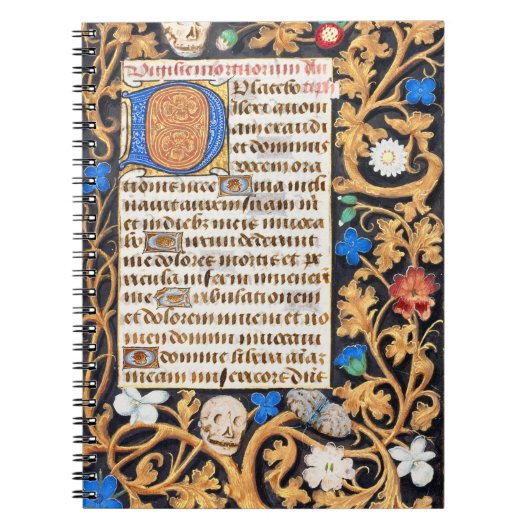 Vigilie mortuorum an
Placebo tiph
Dilexi quoni
am exaudi
et dominus
vocem ora
tionis mee Quia incli
nauit aurem suam m
et in diebz meis inuoca
bo Circumdederunt
me dolores mortis et pe
ricula inferni inuenerūt
me Tribulationem
et dolorem inueni et no
men domini inuocaui
O domine libera aīaz
meam